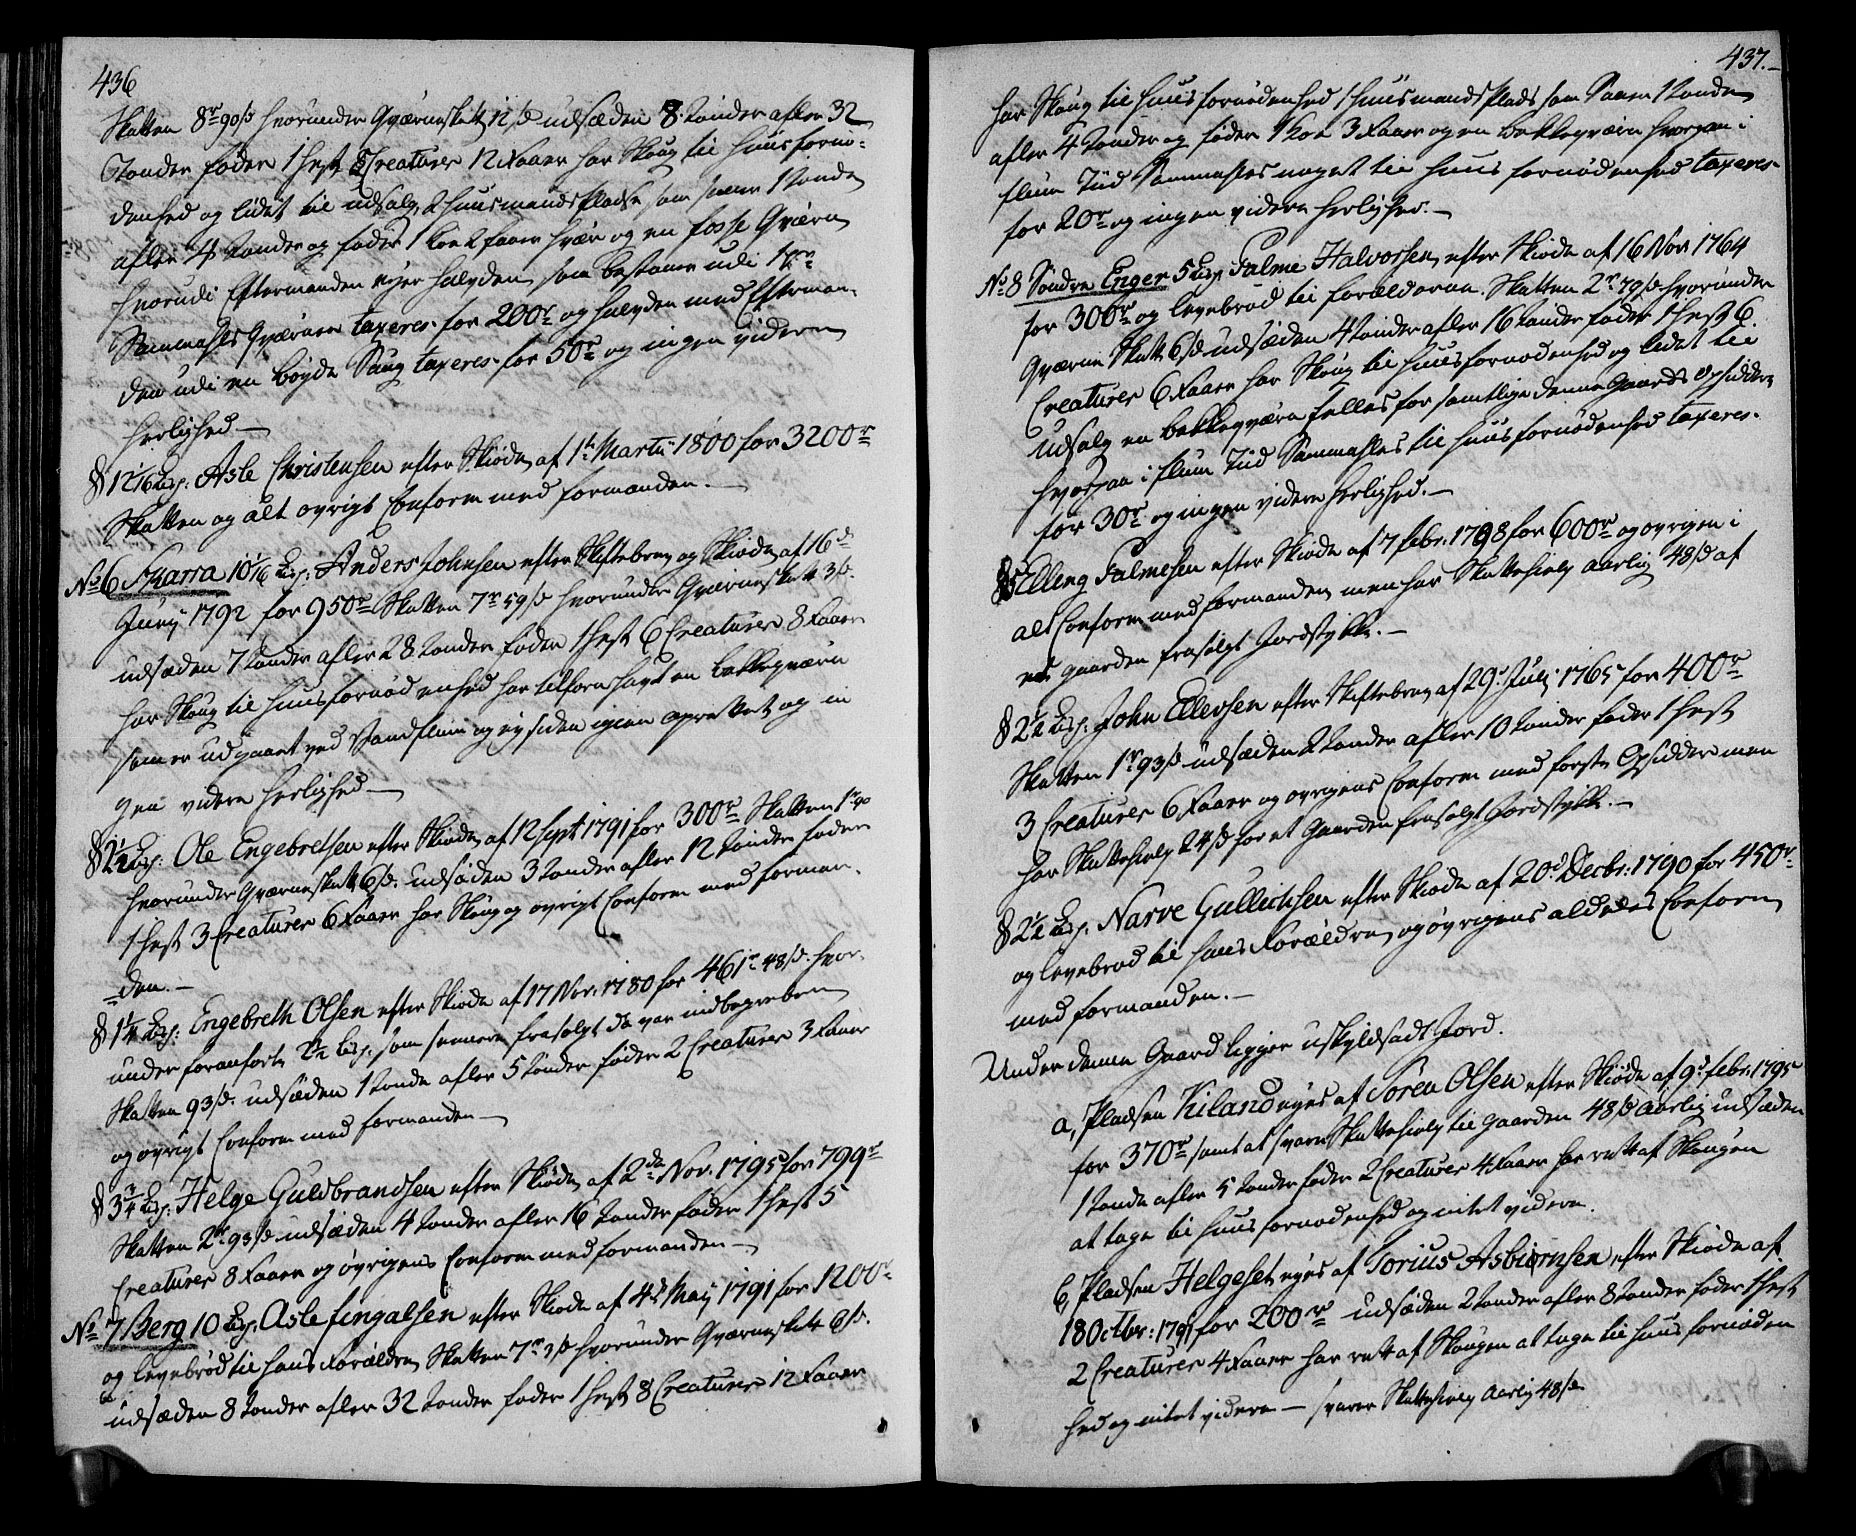 436
Skatten 8r 90s hvorunder Qværneskatt 12s udsæden 8 tønder afler 32
Tønder føder 1 hest 8 Creaturer 12 Faaer har Skoug til huusfornø-
denhed og lidet til udsalg, 2 huusmandsPladse som saaer 1 tønde
afler 4 tønder og føder 1 koe 2 faaer hvær og en fosse Qværn
hvorudi Eftermanden ejer halvden, som bestaaer udi
Sammahles Qværnen taxeres for 200r og halvden med Efterman-
den udi en bøyde Saug taxeres for 50r og ingen videre
herlighed.—
§ 12 1/16 Lisp: Asle Christensen efter Skiøde af 1te Martii 1800 for 3200r
Skatten og alt øvrigt Conform med formanden.—
No 6 Skarra 10 1/16 Lisp: Anders Johnsen efter Skiftebrev og Skiøde af 16d
Junij 1792 for 950r Skatten 7r 59s hvorunder Qværneskatt 3s.
udsæden 7 tønder afler 28 tønder føder 1 hest 6 Creaturer 8 Faaer
har Skoug til huusfornødenhed har tilforn havt en bekkeqværn
som er udgaaet ved Vandflum og ej siden igien oprettet og in
gen videre herlighed.—
§ 2 1/2 Lisp: Ole Engebretsen efter Skiøde af 12 Sept 1791 for 300r Skatten 1r 90
hvorunder Qværneskatt 6s. udsæden 3 tønder afler 12 tønder føder
1 hest 3 Creaturer 6 Faaer har Skoug og øvrigt Conform med forman-
den.—
§ 1 1/4 Lisp: Engebreth Olsen efter Skiøde af 17 Nov: 1780 for 461r 48s. hvor-
under foranførte 2 1/2 Lisp. som senere frasolgt da var indbegreben
Skatten 93s. udsæden 1 tønde afler 5 tønder føder 2 Creaturer 3 Faaer
og øvrigt Conform med formanden—
§ 3 3/4 Lisp: Helge Guldbrandsen efter Skiøde af 2de Nov. 1795 for 799r
Skatten 2r 93s udsæden 4 tønder afler 16 tønder føder 1 hest 5
Creaturer 8 Faaer og øvrigens Conform med formanden—
No 7 Berg 10 Lisp. Asle fingalsen efter Skiøde af 4de Maij 1791 for 1200r
og levebrød til hans Forældre Skatten 7r 3s hvorunder Qværneskatt 6s.
udsæden 8 tønder afler 32 tønder føder 1 hest 8 Creaturer 12 Faaer
437.
har Skoug til huusfornødenhed 1 huusmandsPlads som Saaer 1 tønde
afler 4 tønder og føder 1 koe 3 Faaer og en bekkeqværn hvorpaa i
flum Tiid Sammahles noget til huus fornødenhed taxeres
for 20r og ingen videre herlighed.—
No 8 Søndre Enger 5 Lisp. Palme Halvorsen, efter Skiøde af 16 Nov 1764
for 300r og levebrød til forældrene. Skatten 2r 79s hvorunder
Qværne Skatt 6s udsæden 4 tønder afler 16 tønder føder 1 hest 6
Creaturer 6 Faaer har Skoug til huusfornødenhed og lidet til
udsalg en bekkeqværn fælles for samtlige denne Gaards Opsiddere
hvorpaa i flum Tiid Sammahles til huusfornødenhed taxeres
for 30r og ingen videre herlighed.—
§ 5 Elleng Palmesen efter Skiøde af 7 febr: 1798 for 600r og øvrigen i
alt Conform med formanden men har Skattehielp aarlig 48s af
et gaarden frasolgt Jordstykke.—
§ 2 1/2 Lisp: John Ellevsen efter Skiftebrev af 29de Julj 1765 for 400r
Skatten 1r 93s udsæden 2 tønder afler 10 tønder føder 1 hest
3 Creaturer 6 Faaer og øvrigens Conform med første Opsidder men
har Skattehielp 24s for et Gaarden frasolgt Jordstykke.—
§ 2 1/2 Lisp. Narve Gullechsen efter Skiøde af 20de Decbr: 1790 for 450r
og levebrød til hans Forældre og øvrigens aldeles Conform
med formanden.—
Under denne Gaard ligger uskyldsadt Jord.
a, Pladsen Kiland eyes af Søren Olsen efter Skiøde af 9de febr: 1795
for 370r samt at svare Skattehielp til gaarden 48s Aarlig udsæden
1 tønde afler 5 tønder føder 2 Creaturer 4 Faaer har rett af Skougen
at tage til huusfornødenhed og intet videre.
b, Pladsen Helgeset eyes af Torius Asbiørnsen efter Skiøde af
18 Octbr: 1791 for 200r udsæden 2 tønder afler 8 tønder føder 1 hest
2 Creaturer 4 Faaer har rett af Skougen at tage til huusfornøden
hed og intet videre— svarer Skattehielp Aarlig 48s.